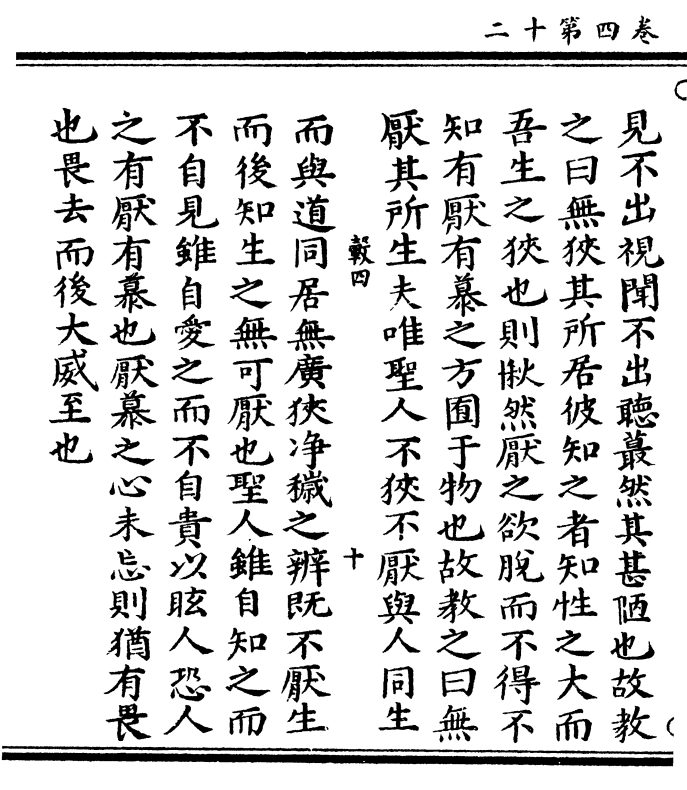 卷四第十二
見不出視聞不出聽蕞然其甚陋也故教
之曰無狹其所居彼知之者知性之大而
吾生之狹也則愀然厭之欲脫而不得不
知有厭有慕之方囿于物也故教之曰無
厭其所生夫唯聖人不狹不厭與人同生
㲄四　十
而與道同居無廣狹净穢之辨既不厭生
而後知生之無可厭也聖人雖自知之而
不自見雖自愛之而不自貴以眩人恐人
之有厭有慕也厭慕之心未忘則猶有畏
也畏去而後大威至也